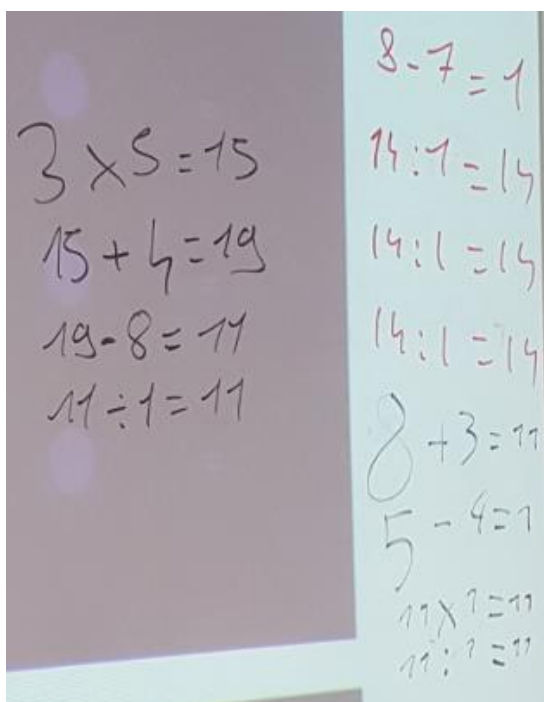 3 × 5 = 15
15 + 4 = 19
19 - 8 = 11
11 ÷ 1 = 11
8 - 7 = 1
14 : 1 = 14
14 : 1 = 14
14 : 1 = 14
8 + 3 = 11
5 - 4 = 1
11 × 1 = 11
11 : 1 = 11